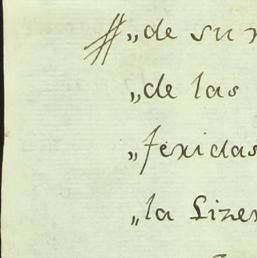 # „de su
„de las
„feridas
„la Lizen